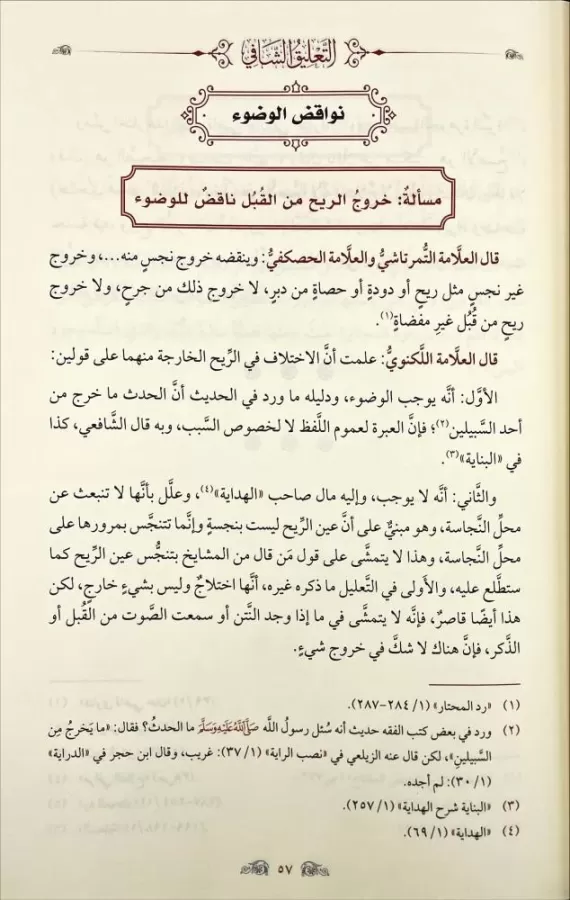 التعليق الشافي
نواقض الوضوء
مسألةٌ: خروجُ الريح من القُبُل ناقضٌ للوضوء
قال العلَّامة التُّمرتاشيُّ والعلَّامة الحصكفيُّ: وينقضه خروج نجسٍ منه...، وخروج
غير نجسٍ مثل ريحٍ أو دودةٍ أو حصاةٍ من دبرٍ، لا خروج ذلك من جرحٍ، ولا خروج
ريحٍ من قُبُل غيرِ مفضاةٍ(١).
قال العلَّامة اللَّكنويُّ: علمت أنَّ الاختلاف في الرِّيح الخارجة منهما على قولين:
الأوَّل: أنَّه يوجب الوضوء، ودليله ما ورد في الحديث أنَّ الحدث ما خرج من
أحد السَّبيلين(٢)؛ فإنَّ العبرة لعموم اللَّفظ لا لخصوص السَّبب، وبه قال الشَّافعي، كذا
في «البناية»(٣).
والثَّاني: أنَّه لا يوجب، وإليه مال صاحب «الهداية»(٤)، وعلَّل بأنَّها لا تنبعث عن
محلِّ النَّجاسة، وهو مبنيٌّ على أنَّ عين الرِّيح ليست بنجسةٍ وإنَّما تتنجَّس بمرورها على
محلِّ النَّجاسة، وهذا لا يتمشَّى على قول مَن قال من المشايخ بتنجُّس عين الرِّيح كما
ستطَّلع عليه، والأَولى في التَّعليل ما ذكره غيره، أنَّها اختلاجٌ وليس بشيءٍ خارجٍ، لكن
هذا أيضًا قاصرٌ، فإنَّه لا يتمشَّى في ما إذا وجد النَّتن أو سمعت الصَّوت من القُبل أو
الذَّكر، فإنَّ هناك لا شكَّ في خروج شيءٍ.
(١) «رد المحتار» (١/ ٢٨٤-٢٨٧).
(٢) ورد في بعض كتب الفقه حديث أنه سُئل رسولُ الله ﷺ ما الحدث؟ فقال: «ما يَخرجُ مِن
السَّبيلينِ»، لكن قال عنه الزيلعي في «نصب الراية» (١/ ٣٧): غريب، وقال ابن حجر في «الدراية»
(١/ ٣٠): لم أجده.
(٣) «البناية شرح الهداية» (١/ ٢٥٧).
(٤) «الهداية» (١/ ٦٩).
٥٧